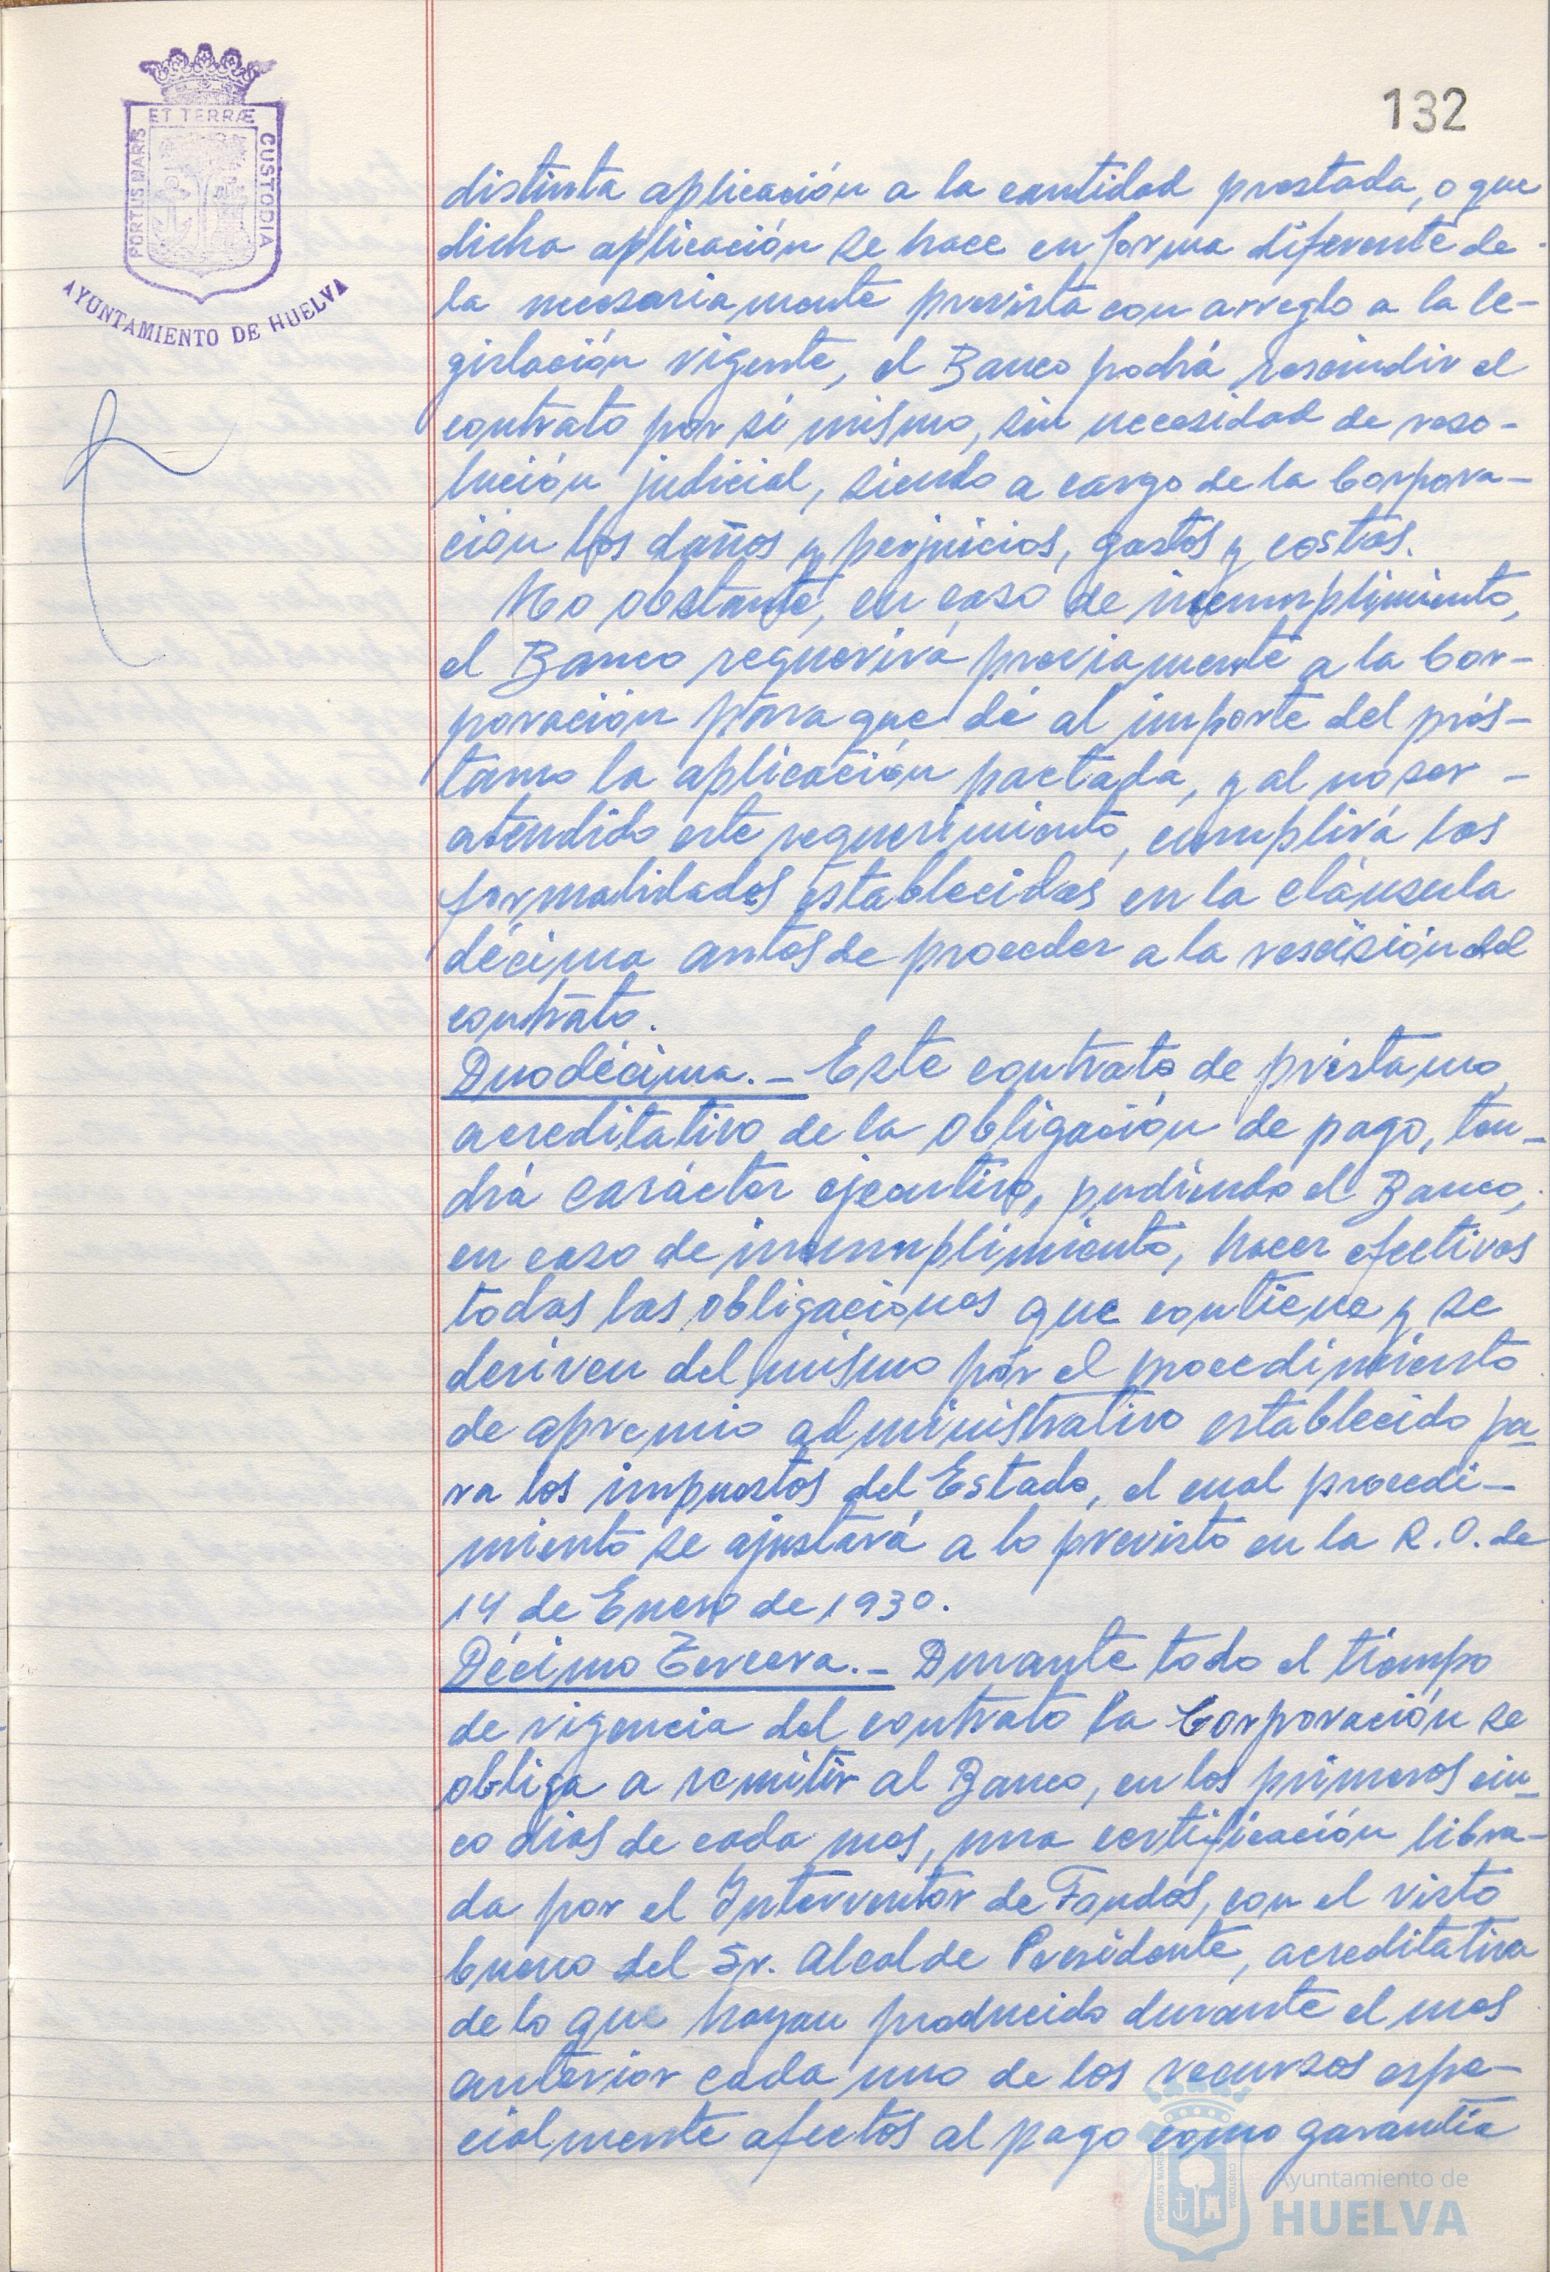 ET TERRÆ
PORTUS MARIS
CUSTODIA
AYUNTAMIENTO DE HUELVA
132
distinta aplicación a la cantidad prestada, o que
dicha aplicación se hace en forma diferente de
la necesariamente prevista con arreglo a la le-
gislación vigente, el Banco podrá rescindir el
contrato por sí mismo, sin necesidad de reso-
lución judicial, siendo a cargo de la Corpora-
ción los daños y perjuicios, gastos y costas.
No obstante, en caso de incumplimiento,
el Banco requerirá previamente a la Cor-
poración para que dé al importe del prés-
tamo la aplicación pactada, y al no ser -
atendido este requerimiento, cumplirá las
formalidades establecidas en la cláusula
décima antes de proceder a la rescisión del
contrato.
Duodécima.- Este contrato de préstamo,
acreditativo de la obligación de pago, ten-
drá carácter ejecutivo, pudiendo el Banco,
en caso de incumplimiento, hacer efectivas
todas las obligaciones que contiene y se
deriven del mismo por el procedimiento
de apremio administrativo establecido pa-
ra los impuestos del Estado, el cual procedi-
miento se ajustará a lo previsto en la R.O. de
14 de Enero de 1930.
Décimo Tercera.- Durante todo el tiempo
de vigencia del contrato la Corporación se
obliga a remitir al Banco, en los primeros cin-
co días de cada mes, una certificación libra-
da por el Interventor de Fondos, con el visto
bueno del Sr. Alcalde Presidente, acreditativa
de lo que hayan producido durante el mes
anterior cada uno de los recursos espe-
cialmente afectos al pago como garantía
Ayuntamiento de
HUELVA